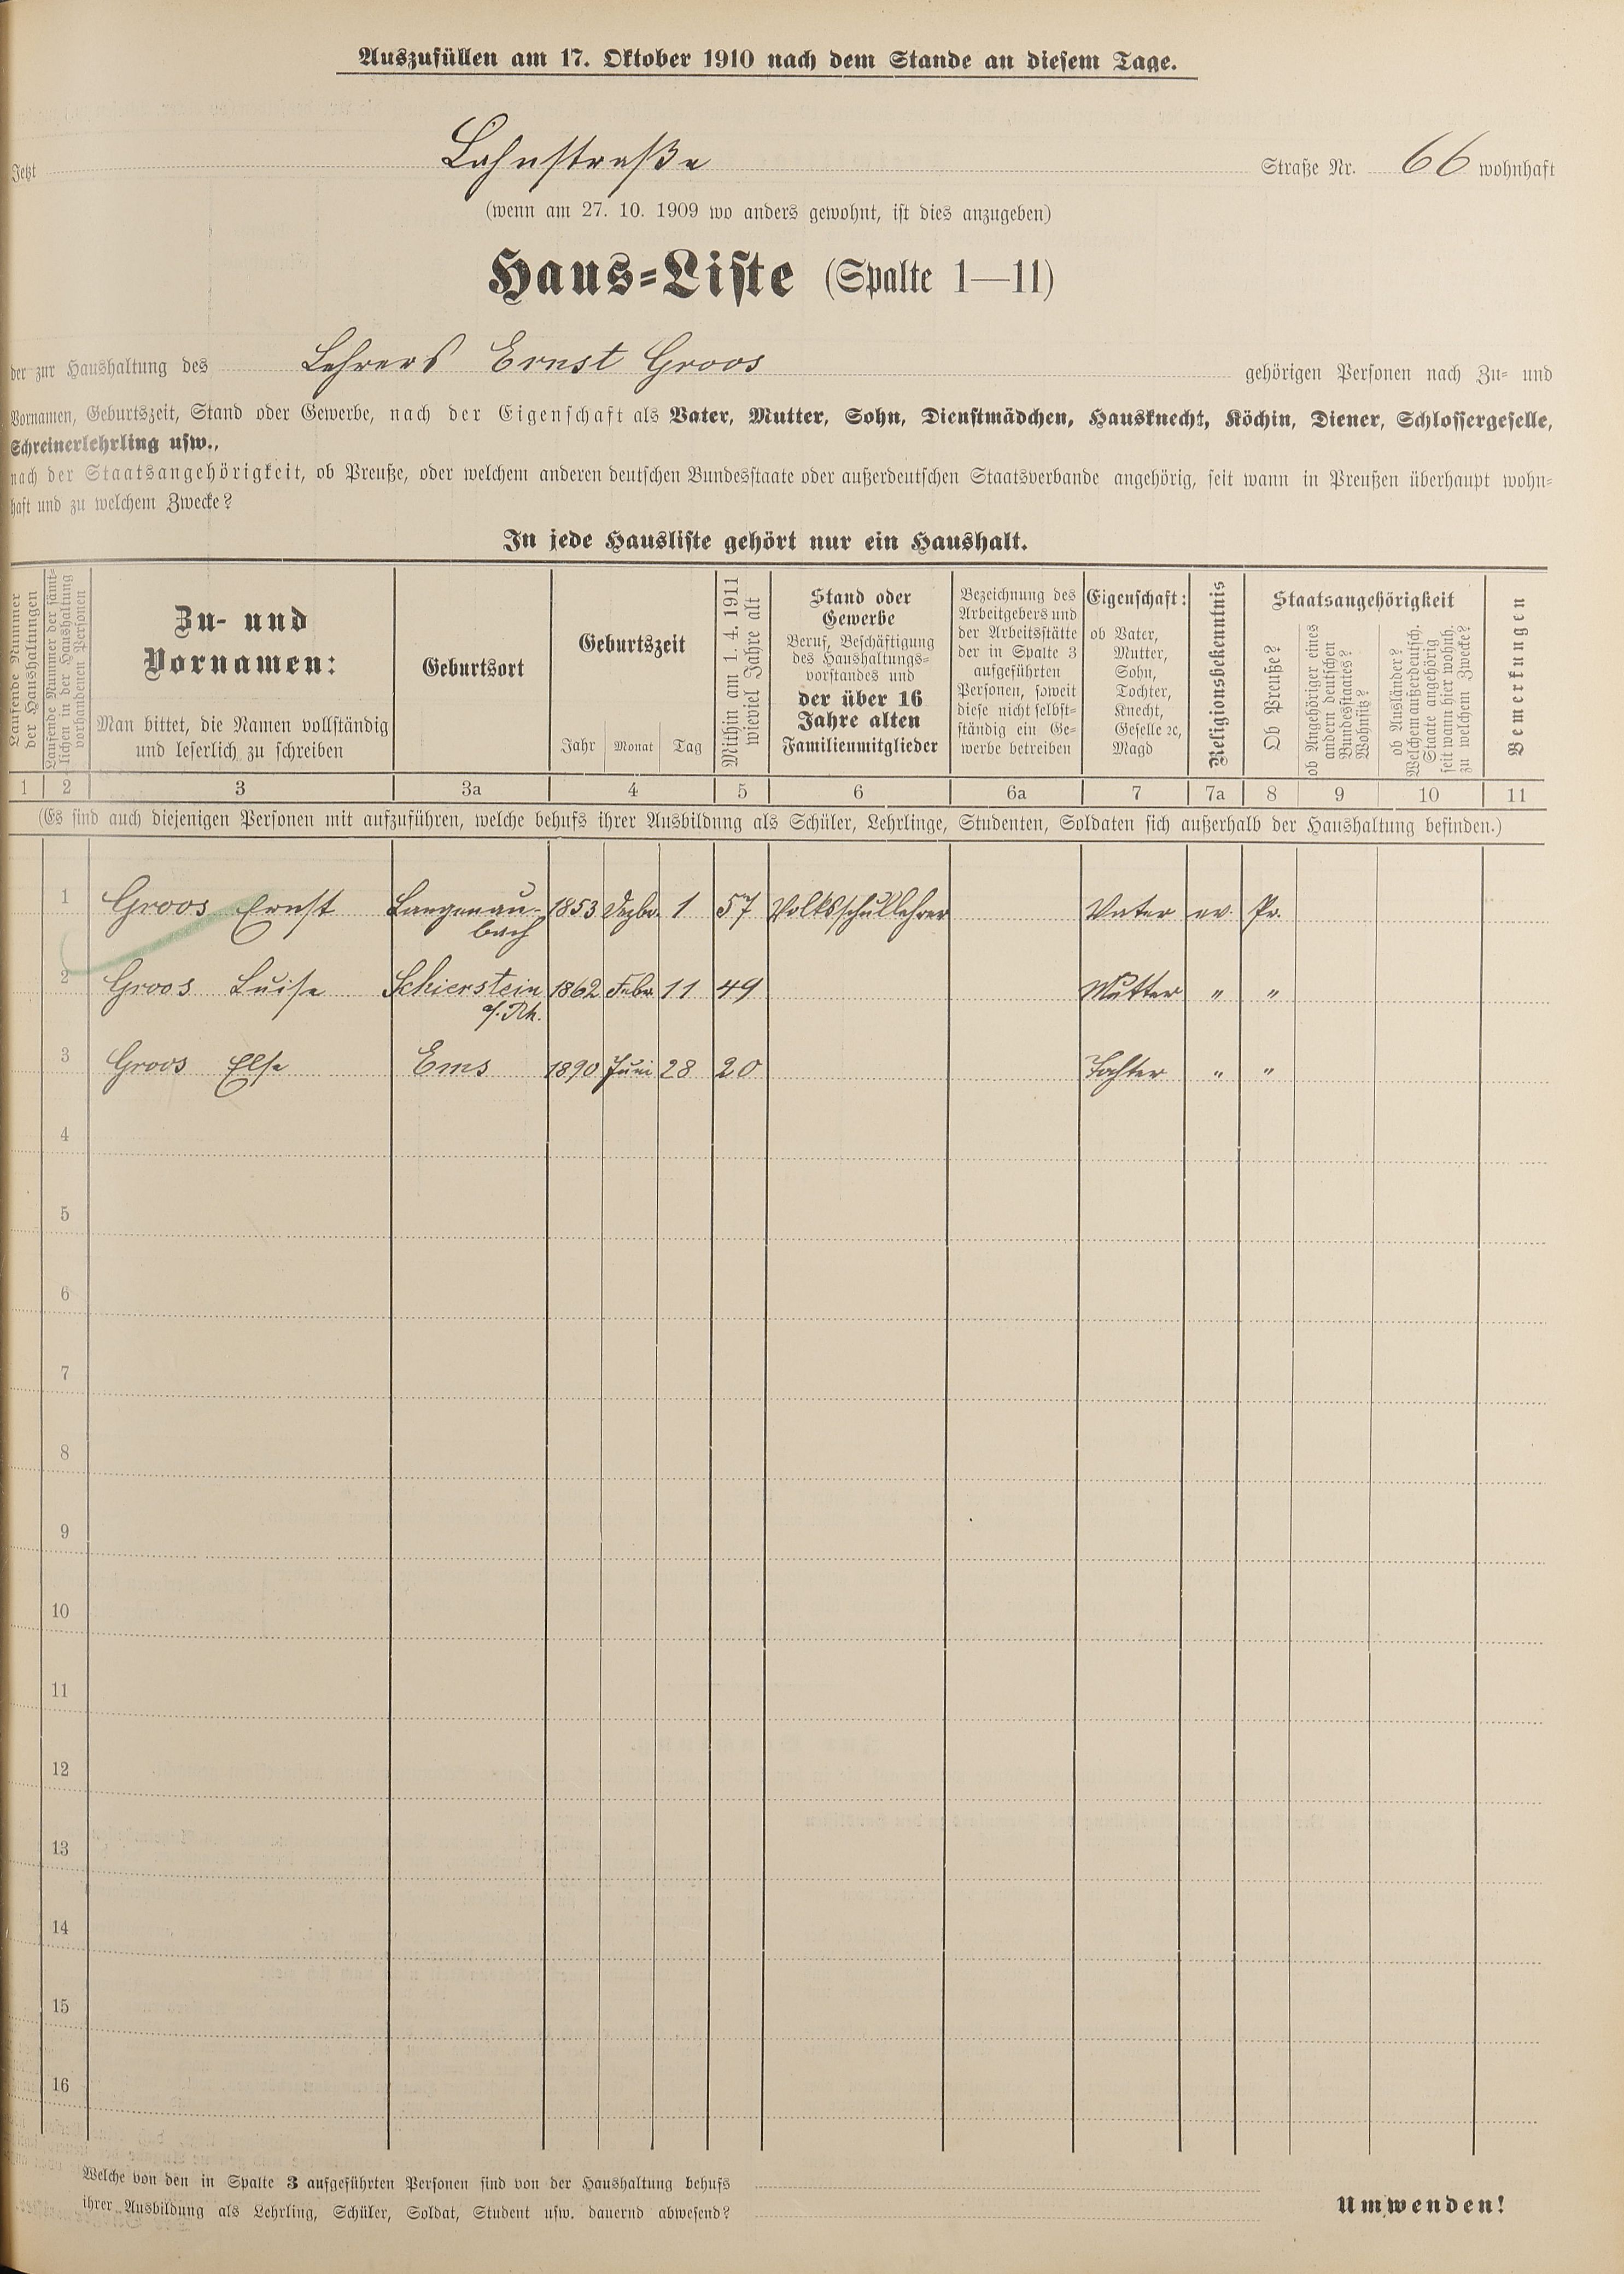 Auszufüllen am 17. Oktober 1910 nach dem Stande an diesem Tage.
Jetzt Lahnstraße Straße Nr. 66 wohnhaft
(wenn am 27. 10. 1909 wo anders gewohnt, ist dies anzugeben)
Haus-Liste (Spalte 1—11)
der zur Haushaltung des Lehrers Ernst Groos gehörigen Personen nach Zu- und
Vornamen, Geburtszeit, Stand oder Gewerbe, nach der Eigenschaft als Vater, Mutter, Sohn, Dienstmädchen, Hausknecht, Köchin, Diener, Schlossergeselle,
Schreinerlehrling usw.,
nach der Staatsangehörigkeit, ob Preuße, oder welchem anderen deutschen Bundesstaate oder außerdeutschen Staatsverbande angehörig, seit wann in Preußen überhaupt wohn-
haft und zu welchem Zwecke?
In jede Hausliste gehört nur ein Haushalt.
Laufende Nummer
der Haushaltungen
Laufende Nummer der sämt-
lichen in der Haushaltung
vorhandenen Personen
Zu- und
Vornamen:
Man bittet, die Namen vollständig
und leserlich zu schreiben
Geburtsort
Geburtszeit
Jahr Monat Tag
Mithin am 1. 4. 1911
wieviel Jahre alt
Stand oder
Gewerbe
Beruf, Beschäftigung
des Haushaltungs-
vorstandes und
der über 16
Jahre alten
Familienmitglieder
Bezeichnung des
Arbeitgebers und
der Arbeitsstätte
der in Spalte 3
aufgeführten
Personen, soweit
diese nicht selbst-
ständig ein Ge-
werbe betreiben
Eigenschaft:
ob Vater,
Mutter,
Sohn,
Tochter,
Knecht,
Geselle ꝛc,
Magd
Religionsbekenntnis
Staatsangehörigkeit
Ob Preuße?
ob Angehöriger eines
andern deutschen
Bundesstaates?
Wohnsitz?
ob Ausländer?
Welchem außerdeutsch.
Staate angehörig
seit wann hier wohnh.
zu welchem Zwecke?
Bemerkungen
1 2 3 3a 4 5 6 6a 7 7a 8 9 10 11
(Es sind auch diejenigen Personen mit aufzuführen, welche behufs ihrer Ausbildung als Schüler, Lehrlinge, Studenten, Soldaten sich außerhalb der Haushaltung befinden.)
1 Groos Ernst Langenau- 1853 Dezbr. 1 57 Volksschullehrer Vater ev. Pr.
bach
2 Groos Luise Schierstein 1862 Febr 11 49 Mutter " "
a/. Rh.
3 Groos Else Ems 1890 Juni 28 20 Tochter " "
4
5
6
7
8
9
10
11
12
13
14
15
16
Welche von den in Spalte 3 aufgeführten Personen sind von der Haushaltung behufs
ihrer Ausbildung als Lehrling, Schüler, Soldat, Student usw. dauernd abwesend?
Umwenden!